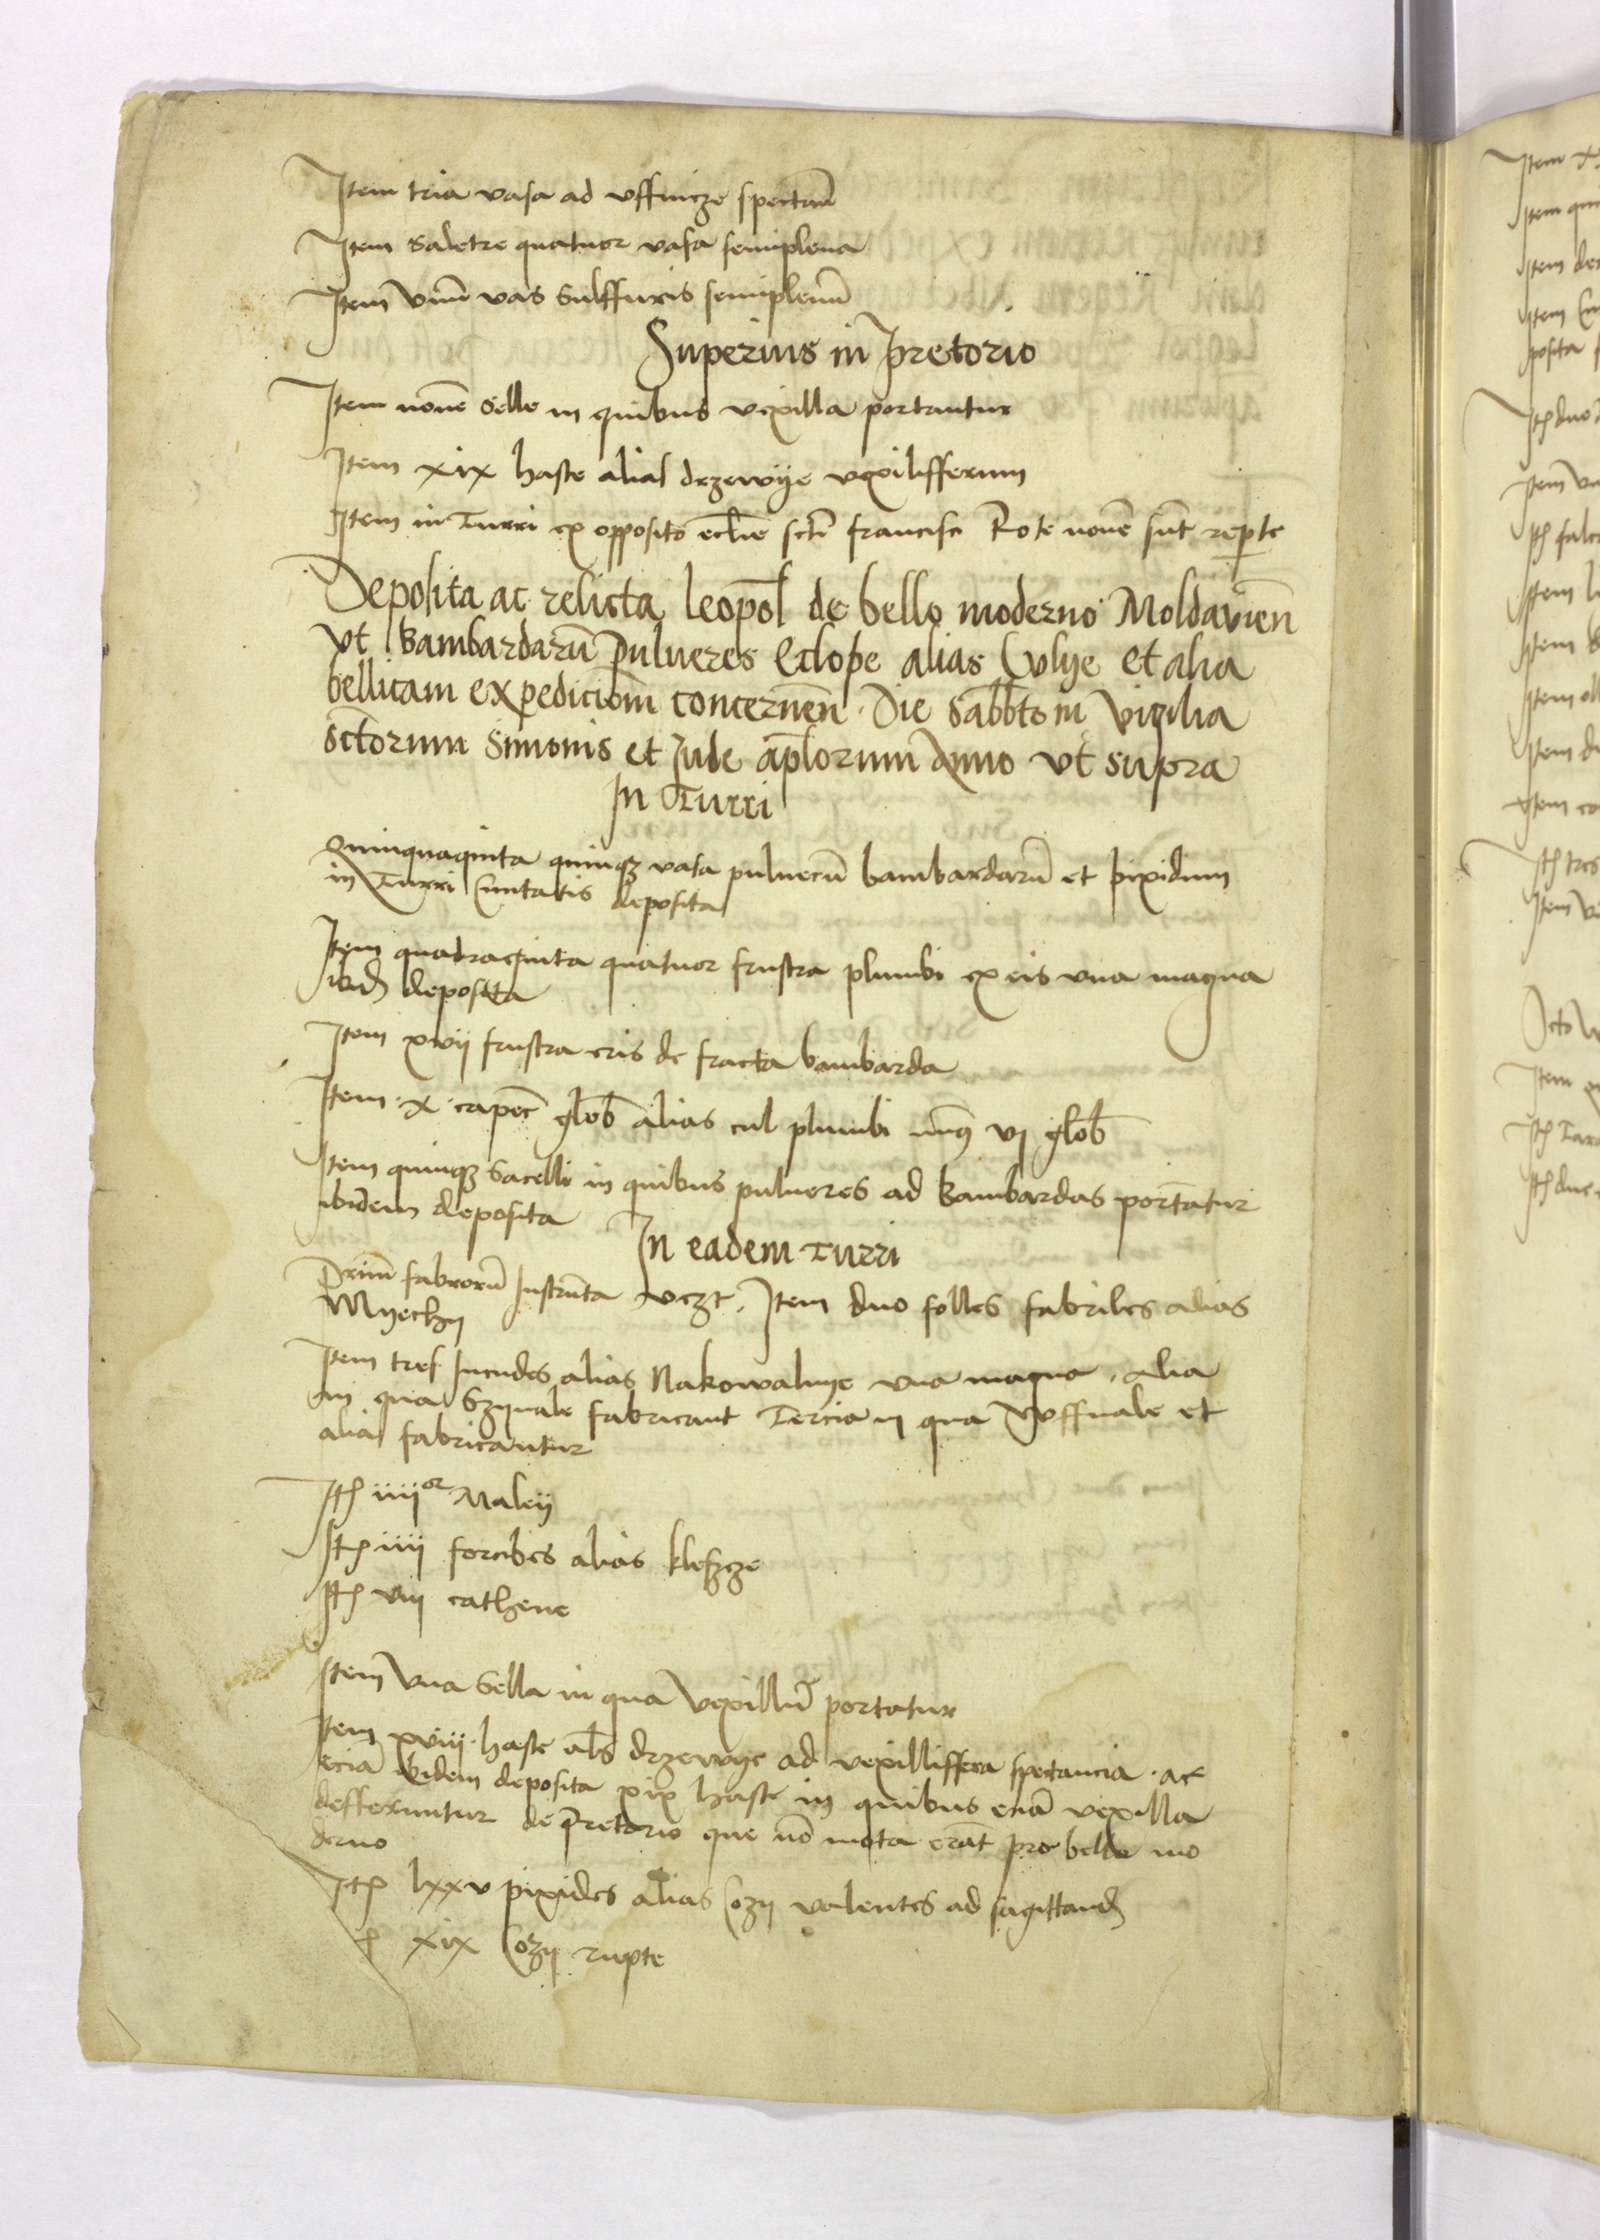 Item tria vasa ad vffnicze spectan̄
Item Saletre quatuor vasa semiplena
Item vnū vas Sulffuris semiplenū
Superius in pretorio
Item nouē Selle in quibus vexilla portantur
Item xix haste alias drzewyie vexilifferum
Item in Turri ex opposito eccl̄ie sct̄i francisci Rote nouē sūt rep̄te
Deposita ac relicta leopol̄ de bello moderno Moldauien̄
vt bambardarū pulueres Eclope alias Culye et alia
bellicam expedicionē concernen̄ Die Sabb̄to in vigilia
sc̄torum Simonis et Jude apl̄orum Anno vt supra
In Turri
Quinquaginta quinqȝ vasa puluerū bambardarū et pixidum
in Turri Ciuitatis deposita
Item quadraginta quatuor frustra plumbi ex eis vna magna
ibid̄ deposita
Item xvij frustra eris de fracta bambarda
Item x capec̄ glob̄ alias cul plumbi min9 vj glob̄
Item quinqȝ Sacelli in quibus pulueres ad bambardas portātur
ibidem deposita
In eadem Turri
Primū fabrorū Instrūta vczt. Item duo folles fabriles alias
Myechy
Item tres Incudes alias Nakowalnye vna magna. alia
in qua Szynale fabricant Tercia in qua Vffnale et
alia fabricantur
It̄ iiij^or Maleij
It̄ iiij forcibes alias klefzcze
It̄ viij cathene
Item Vna Sella in qua Vexillū portatur
Item xviij haste al̄s drzewye ad vexilliffera spectancia. ac
eciā ibidem deposita xix haste in quibus eciā vexilla
defferuntur de Pretorio que nō mota erāt pro bello mo
derno
It̄ lxxv pixides alias Cozy valentes ad sagittand̄
xix Cozy rupte